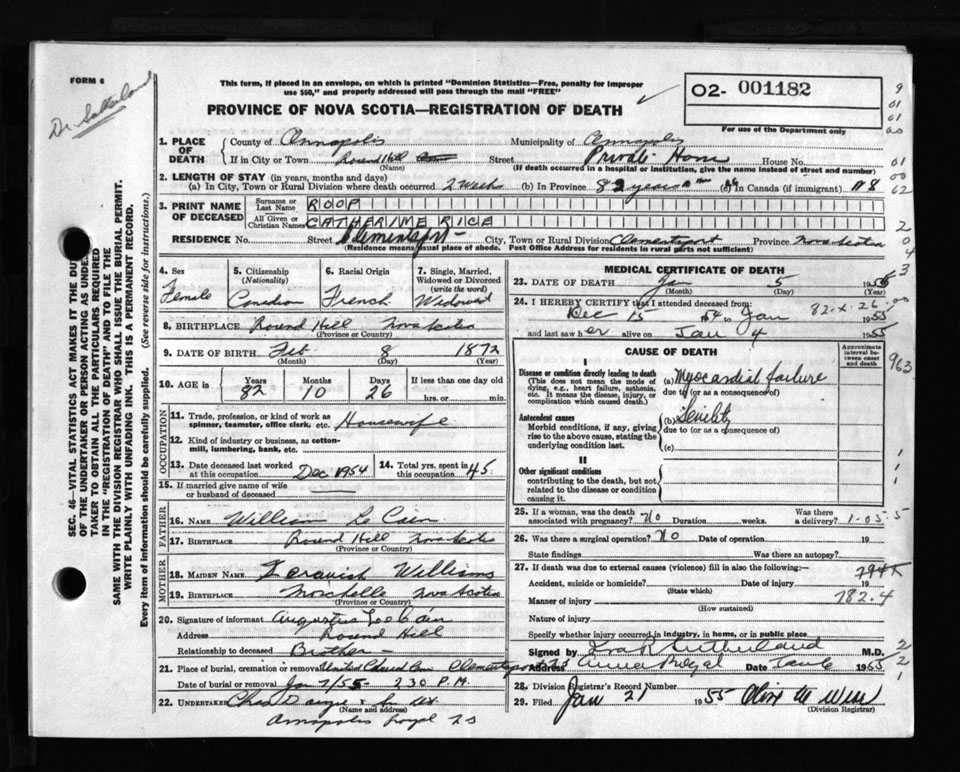 FORM 6
Dr. Sutherland
This form, if placed in an envelope, on which is printed "Dominion Statistics—Free, penalty for improper
use $50," and properly addressed will pass through the mail "FREE"
PROVINCE OF NOVA SCOTIA—REGISTRATION OF DEATH
O2- 001182
For use of the Department only
1. PLACE OF DEATH
County of Annapolis Municipality of Annapolis
If in City or Town Round Hill Street Private Home House No.
(Name) (If death occurred in a hospital or institution, give the name instead of street and number)
2. LENGTH OF STAY (in years, months and days)
(a) In City, Town or Rural Division where death occurred 2 Weeks (b) In Province 82 years (c) In Canada (if immigrant)
3. PRINT NAME OF DECEASED
Surname or Last Name ROOP
All Given or Christian Names CATHERINE RICE
RESIDENCE No. Street Clementsport City, Town or Rural Division Clementsport Province Nova Scotia
(Residence means usual place of abode. Post Office Address for residents in rural parts not sufficient)
4. Sex Female
5. Citizenship (Nationality) Canadian
6. Racial Origin French
7. Single, Married, Widowed or Divorced (write the word) Widowed
8. BIRTHPLACE Round Hill Nova Scotia
(Province or Country)
9. DATE OF BIRTH Feb 8 1872
(Month) (Day) (Year)
10. AGE IN Years 82 Months 10 Days 26 If less than one day old hrs. or min.
OCCUPATION
11. Trade, profession, or kind of work as spinner, teamster, office clerk, etc. Housewife
12. Kind of industry or business, as cotton-mill, lumbering, bank, etc.
13. Date deceased last worked at this occupation Dec 1954
14. Total yrs. spent in this occupation 45
15. If married give name of wife or husband of deceased
FATHER
16. NAME William Le Cain
17. BIRTHPLACE Round Hill Nova Scotia
(Province or Country)
MOTHER
18. MAIDEN NAME Williams
19. BIRTHPLACE Nova Scotia
(Province or Country)
20. Signature of informant Augustus Le Cain
Address Round Hill
Relationship to deceased Brother
21. Place of burial, cremation or removal United Church Cem Clementsport
Date of burial or removal Jan 7/55 - 2 30 P.M.
22. UNDERTAKER
(Name and address)
Annapolis Royal NS
MEDICAL CERTIFICATE OF DEATH
23. DATE OF DEATH Jan 5 1955
(Month) (Day)
24. I HEREBY CERTIFY that I attended deceased from:
Dec 15 54 to Jan 1955
82.X.26.
and last saw her alive on Jan 4 1955
CAUSE OF DEATH
Approximate interval between onset and death
I
Disease or condition directly leading to death
(This does not mean the mode of dying, e.g., heart failure, asthenia, etc. It means the disease, injury, or complication which caused death.)
(a) Myocardial failure
due to (or as a consequence of)
Antecedent causes
Morbid conditions, if any, giving rise to the above cause, stating the underlying condition last.
(b) Senility
due to (or as a consequence of)
(c)
II
Other significant conditions
contributing to the death, but not related to the disease or condition causing it.
25. If a woman, was the death associated with pregnancy? No Duration weeks. Was there a delivery?
1-05 5
26. Was there a surgical operation? No Date of operation 19
State findings Was there an autopsy?
27. If death was due to external causes (violence) fill in also the following:—
Accident, suicide or homicide? Date of injury 19
(State which)
Manner of injury 782.4
(How sustained)
Nature of injury
Specify whether injury occurred in industry, in home, or in public place
Signed by Sutherland M.D.
Address Anna Royal Date Jan 6 1955
28. Division Registrar's Record Number
29. Filed Jan 21 1955
(Division Registrar)
SEC. 46—VITAL STATISTICS ACT MAKES IT THE DUTY
OF THE UNDERTAKER OR PERSON ACTING AS UNDER-
TAKER TO OBTAIN ALL THE PARTICULARS REQUIRED
IN THE "REGISTRATION OF DEATH" AND TO FILE THE
SAME WITH THE DIVISION REGISTRAR WHO SHALL ISSUE THE BURIAL PERMIT.
WRITE PLAINLY WITH UNFADING INK. THIS IS A PERMANENT RECORD.
Every item of information should be carefully supplied. (See reverse side for instructions.)
9
01
01
01
00
02
2
0
4
3
963